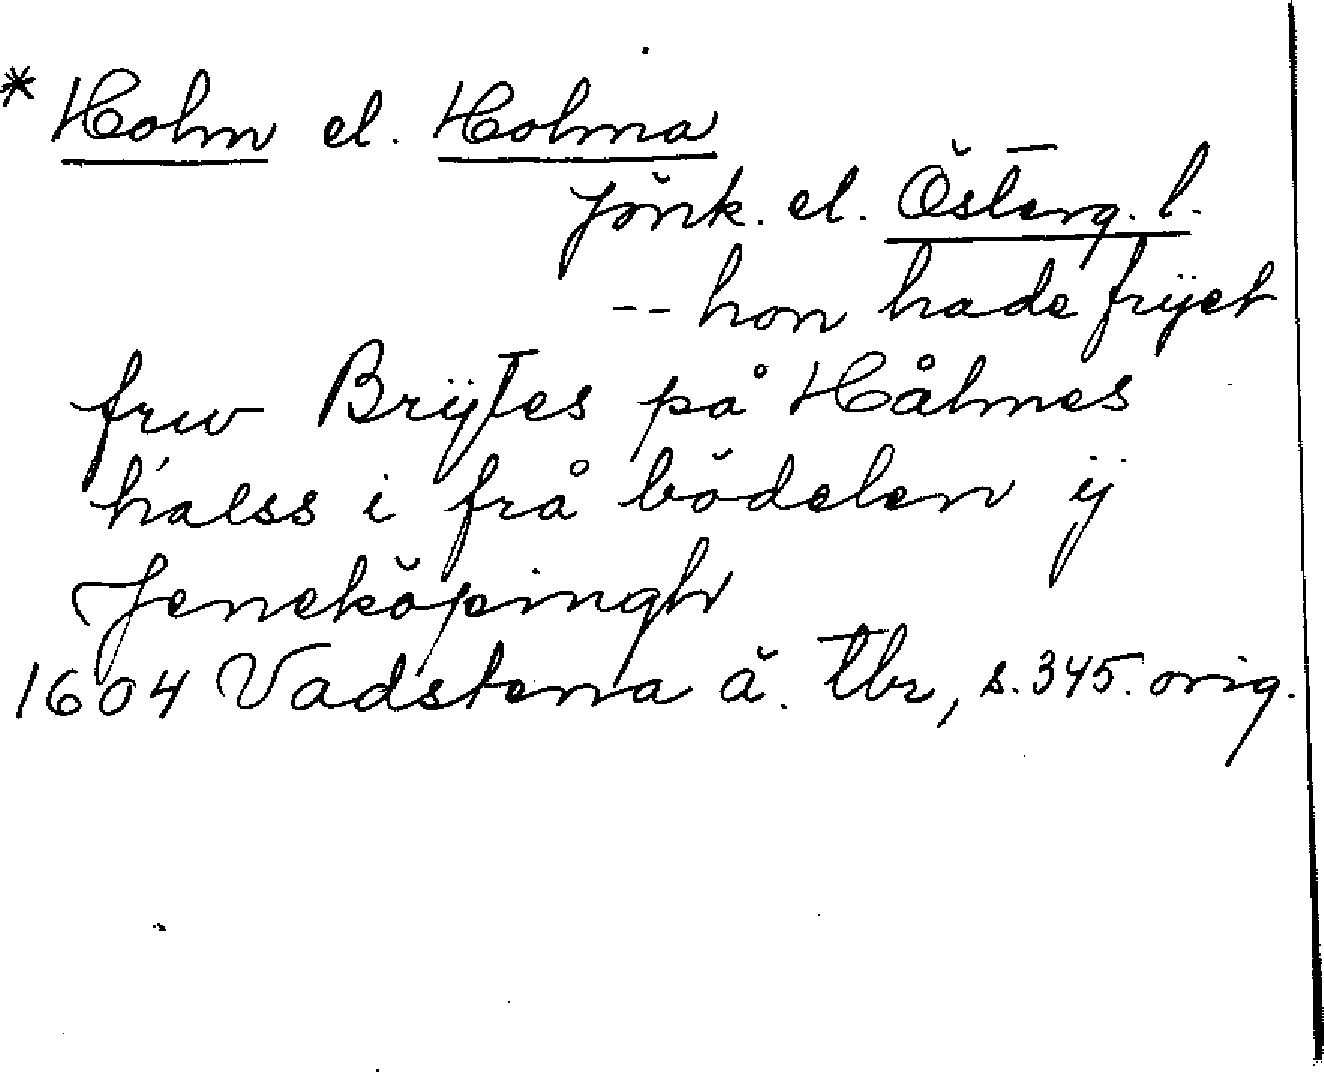 * Holm el. Holma
Jönk. el. Österg. l.
-- hon hade frijet
frw Brijtes på Håhmes
halss i frå bödelen ij
Jeneköpingh
1604 Vadstena ä. tbr, s. 345. orig.